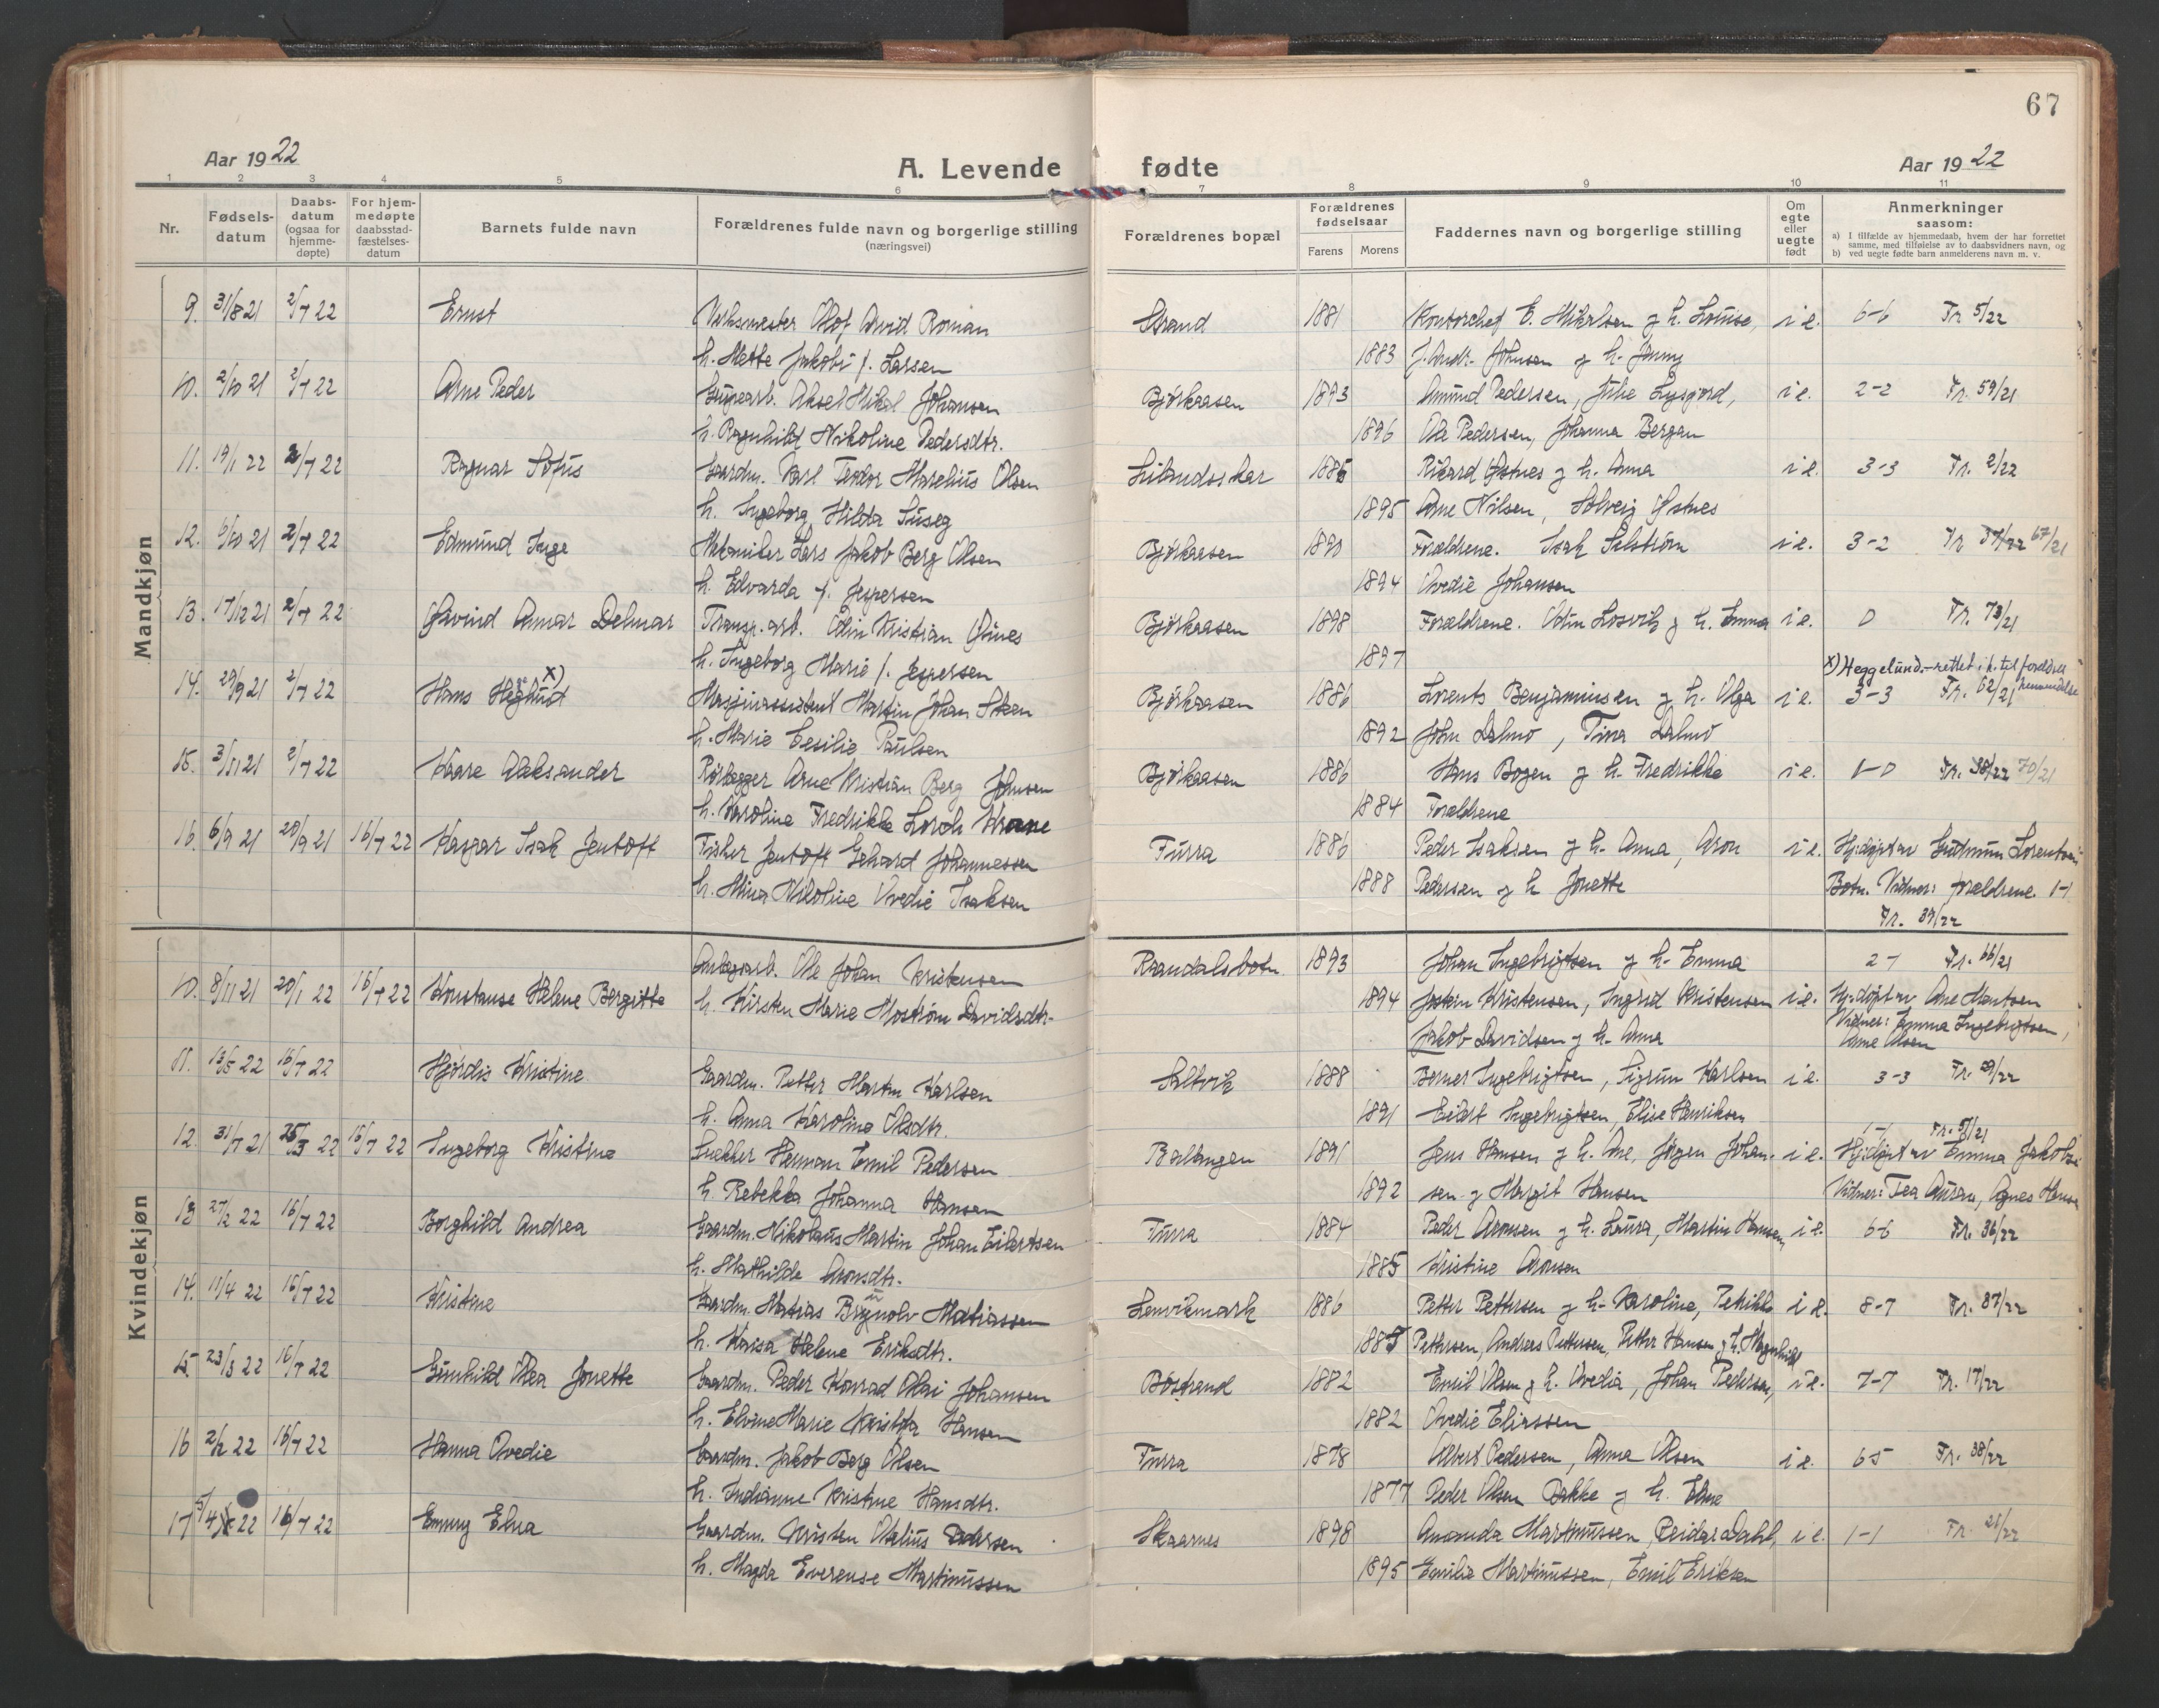 67
Aar 1922 A. Levende fødte Aar 1922
1 2 3 4 5 6 7 8 9 10 11
Nr. Fødsels-datum Daabs-datum (ogsaa for hjemme-døpte) For hjem-medøpte daabsstad-fæstelses-datum Barnets fulde navn Forældrenes fulde navn og borgerlige stilling (næringsvei) Forældrenes bopæl Forældrenes fødselsaar Farens Morens Faddernes navn og borgerlige stilling Om egte eller uegte født Anmerkninger saasom:
a) I tilfælde av hjemmedaab, hvem der har forrettet samme, med tilføielse av to daabsvidners navn, og
b) ved uegte fødte barn anmelderens navn m. v.
Mandkjøn
9. 31/8 21 2/7 22 Ernst Olof Arvid Roman Strand 1881 Kontorchef E. Mikalsen g h. Louise, i e. 6-6 Fr. 5/22
h. Mette Jakobi f. Larsen 1883 J. Andr. Johnsen g h. Jenny
10. 2/10 21 2/7 22 Arne Peder Grubearb. Aksel Mikal Johansen Bjørkaasen 1893 Amund Pedersen, Julie Lysgjord, i e. 2-2 Fr. 59/21
h. Ragnhild Nikoline Pedersdtr. 1896 Ole Pedersen, Johanna Bergan
11. 19/1 22 2/7 22 Ragnar Sofus Gaardm. Karl Teodor Marelius Olsen Lilandsskar 1886 Rikard Østnes g h. Anna i e. 3-3 Fr. 2/22
h. Ingeborg Hilda Suseg 1895 Arne Nilsen, Solveig Østnes
12. 6/10 21 2/7 22 Edmund Inge Mekaniker Lars Jakob Berg Olsen Bjørkaasen 1890 Forældrene. Isak Selström i e. 3-2 Fr 37/22 67/21
h. Edvarda f. Jespersen 1894 Ovedie Johansen
13. 17/12 21 2/7 22 Eivind Annar Delmar Transp. arb. Odin Kristian Osnes Bjørkaasen 1898 Forældrene. Odin Losvik g h. Emma i e. 0 Fr. 73/21
h. Ingeborg Marie f. Jespersen 1897
x) Heggelund. - rettet i h. til foreldres henvendelse
14. 29/9 21 2/7 22 Hans Heglund x) Maskinassistent Martin Johan Steen Bjørkaasen 1886 Lorents Benjaminsen g h. Olga i e. 3-3 Fr. 62/21
h. Marie Cesilie Paulsen 1892 John Dalmo, Tina Dalmo
15. 3/11 21 2/7 22 Kaare Aleksander Rørlægger Arne Kristian Berg Johnsen Bjørkaasen 1886 Hans Bogen g h. Fredrikke i e. 1-0 Fr. 38/22 70/21
h. Karoline Fredrikke Lorch Krane 1884 Forældrene
16. 6/9 21 20/9 21 16/7 22 Kaspar Isak Jentoft Fisker Jentoft Gehard Johannessen Furra 1886 Peder Isaksen g h. Anna, Aron i e. Hj.døpt av Gudmun Lorentsen
h. Mina Nikoline Ovedie Isaksen 1888 Pedersen g h Jonette Botn. Vidner: forældrene. 1-1
Fr. 37/22
Kvindekjøn
Anlægsarb. Ole Johan Kristensen Raandalsbotn 1893 Johan Ingebrigtsen g h. Emma 2-1 Fr. 66/21
10. 8/11 21 20/1 22 16/7 22 Konstanse Helene Bergitte h. Kirsten Marie Moström Davidsdtr. 1894 Jostein Kristensen, Ingrid Kristensen i e. Hj.døpt av Ane Mentsen
Jakob Davidsen g h. Anna Vidner: Emma Ingebrigtsen, Arne Olsen
11. 13/5 22 16/7 22 Hjørdis Kristine Gaardm. Petter Martin Karlsen Saltvik 1888 Berner Ingebrigtsen, Sigrun Karlsen i e. 3-3 Fr. 29/22
h. Anna Karoline Olsdtr. 1891 Eilert Ingebrigtsen, Elise Henriksen
1-1 Fr. 51/21
12. 31/7 21 25/3 22 16/7 22 Ingeborg Kristine Snekker Herman Emil Pedersen Ballangen 1891 Jens Hansen g h. Ane, Jørgen Johan- i e. Hj.døpt av Emma Jakobs.
h. Rebekka Johanna Hansen 1892 sen g Margit Hansen Vidner: Tea Auran, Agnes Hansen
13 27/2 22 16/7 22 Borghild Andrea Gaardm. Nikolaus Martin Johan Eilertsen Furra 1884 Peder Aronsen g h. Laura, Martin Hansen, i e. 6-6 Fr. 36/22
h. Mathilde Aronsdtr. 1885 Kristine Aronsen
14. 11/4 22 16/7 22 Kristine Gaardm. Matias Brynolv Matiassen Lenvikmark 1886 Petter Pettersen g h. Karoline, Petrikke i e. 8-7 Fr. 87/22
h. Kaisa Helene Eriksdtr. 1885 Pettersen, Anders Pettersen, Petter Hansen g h. Magnhild
15. 23/3 22 16/7 22 Gunhild Olea Jonette Gaardm. Peder Konrad Olai Johansen Bøstrand 1882 Emil Olsen g h. Ovedia, Johan Pedersen, i e. 7-7 Fr. 17/22
h. Elvine Marie Kristina Hansen 1882 Ovedie Eliassen
16 2/2 22 16/7 22 Hanna Ovedie Gaardm. Jakob Berg Olsen Furra 1878 Albert Pedersen, Anna Olsen i e. 6-5 Fr. 38/22
h. Indianne Kristine Hansdtr. 1877 Peder Olsen Bakke g h. Eline
17 5/4 22 16/7 22 Emmy Elna Gaardm. Kristen Otelius Pedersen Skaarnes 1898 Amanda Martinussen, Reidar Dahl, i e. 1-1 Fr. 21/22
h. Magda Everense Martinussen 1895 Emilie Martinussen, Emil Eriksen